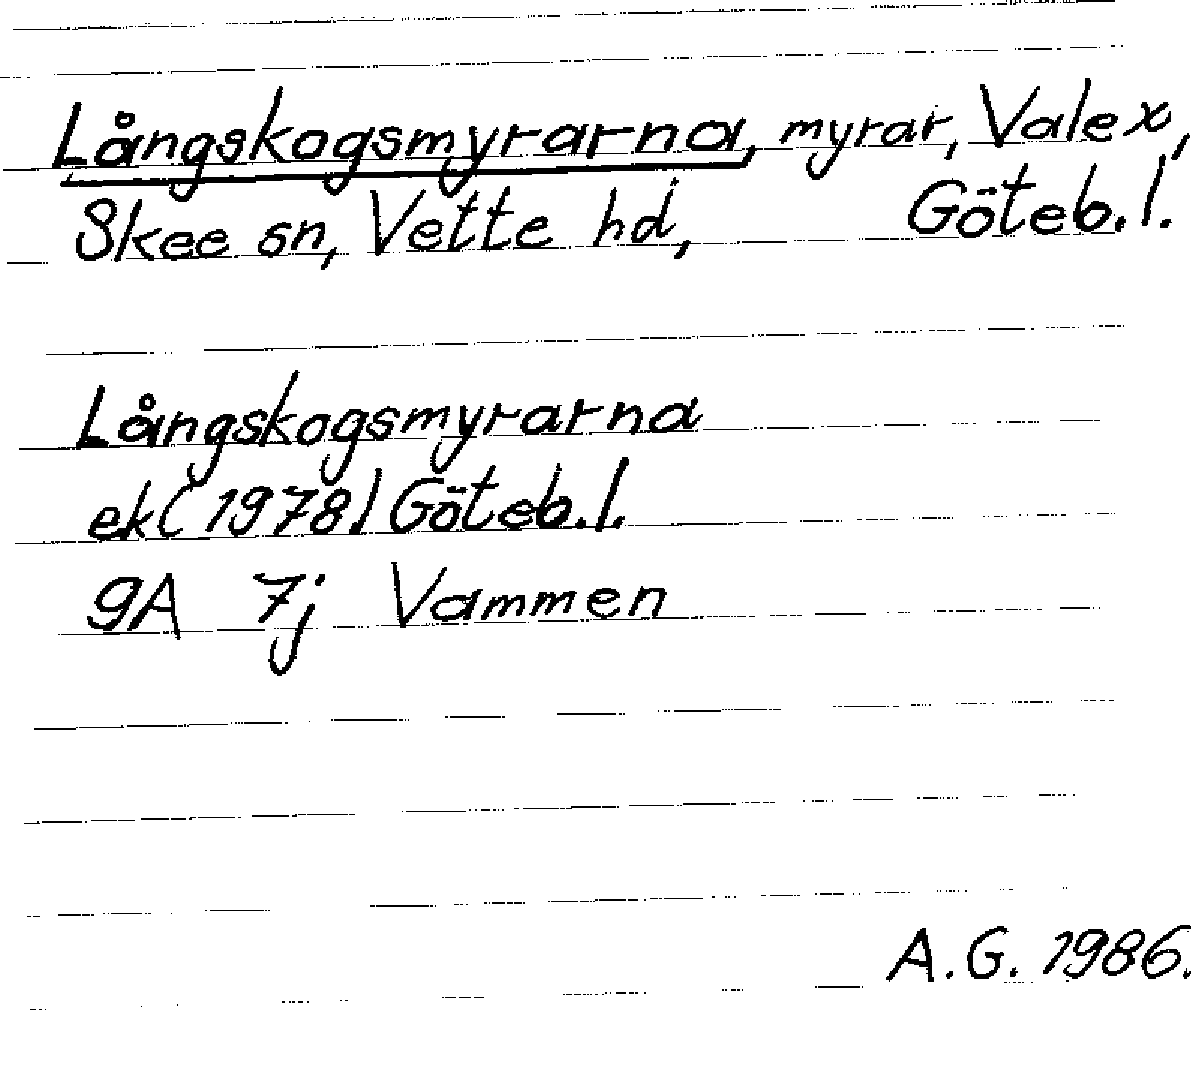 Långskogsmyrarna, myrar, Valex,
Skee sn, Vette hd, Göteb.l.
Långskogsmyrarna
ek(1978) Göteb.l.
9A 7j Vammen
A.G. 1986.